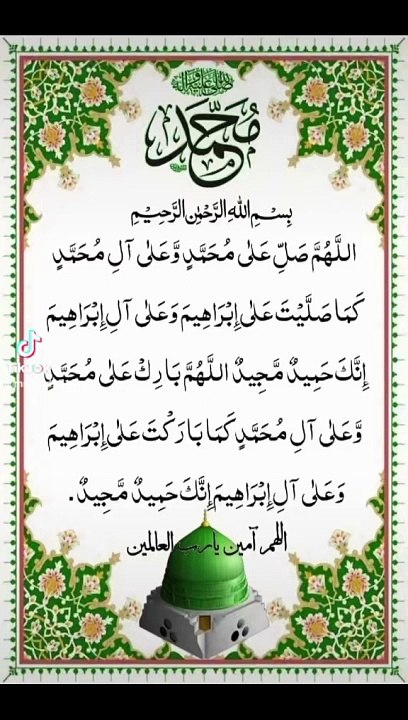 محمد
بِسْمِ اللهِ الرَّحْمٰنِ الرَّحِيْمِ
اللَّهُمَّ صَلِّ عَلٰى مُحَمَّدٍ وَّعَلٰى آلِ مُحَمَّدٍ
كَمَا صَلَّيْتَ عَلٰى إِبْرَاهِيمَ وَعَلٰى آلِ إِبْرَاهِيمَ
إِنَّكَ حَمِيدٌ مَّجِيدٌ اللَّهُمَّ بَارِكْ عَلٰى مُحَمَّدٍ
وَّعَلٰى آلِ مُحَمَّدٍ كَمَا بَارَكْتَ عَلٰى إِبْرَاهِيمَ
وَعَلٰى آلِ إِبْرَاهِيمَ إِنَّكَ حَمِيدٌ مَّجِيدٌ.
اللهم آمين يارب العالمين